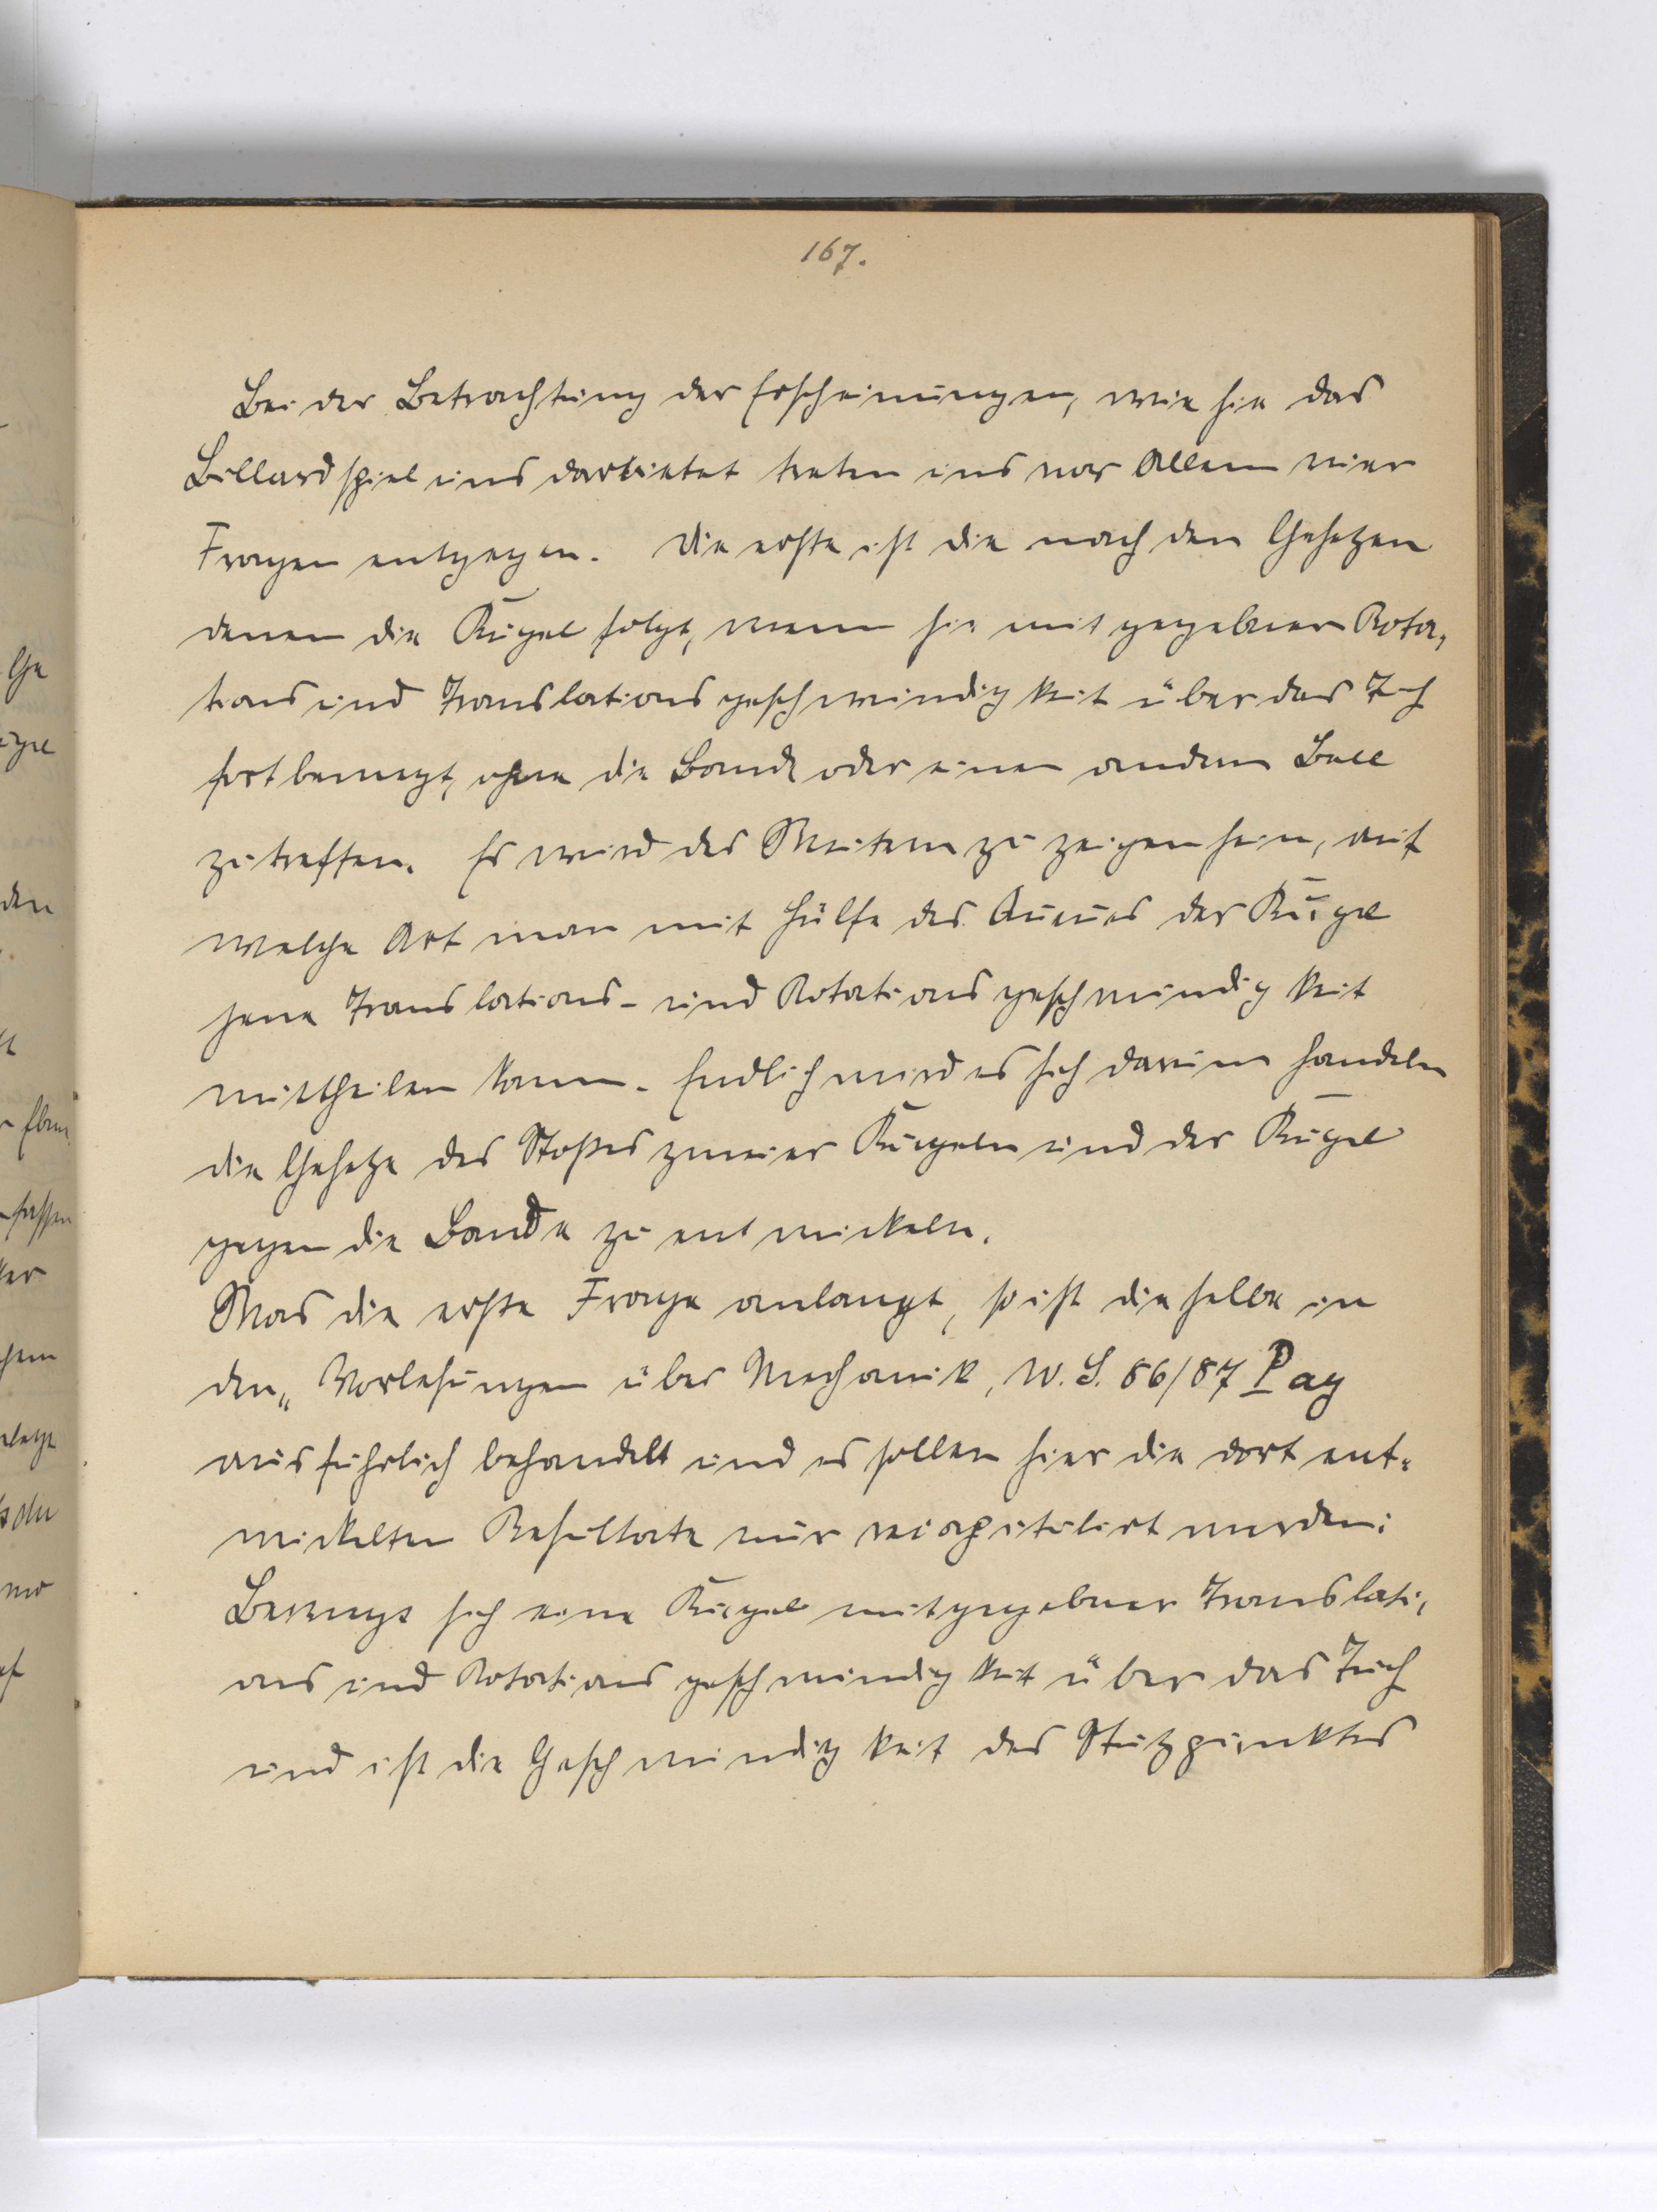 167.
Bei der Betrachtung der Erscheinungen, wie sie das
Billardspiel uns darbietet treten uns vor Allem vier
Fragen entgegen. Die erste ist die nach den Gesetzen
denen die Kugel folgt, wenn sie mit gegebener Rota-
tions und Translationsgeschwindigkeit über das Tuch
fortbewegt, ohne die Bande oder einen andern Ball
zu treffen. Es wird des Weitern zu zeigen sein, auf
welche Art man mit Hülfe des Queues der Kugel
jene Translations- und Rotationsgeschwindigkeit
mittheilen kann. Endlich wird es sich darum handeln
die Gesetze des Stoßes zweier Kugeln und der Kugel
gegen die Bande zu entwickeln.
Was die erste Frage anlangt, so ist dieselbe in
den „Vorlesungen über Mechanik, W. S. 86/87 Pag
ausführlich behandelt und es sollen hier die dort ent-
wickelten Resultate nur recapitulirt werden:
Bewegt sich eine Kugel mit gegebener Translati-
ons und Rotationsgeschwindigkeit über das Tuch
und ist die Geschwindigkeit des Stützpunktes
Ge
den